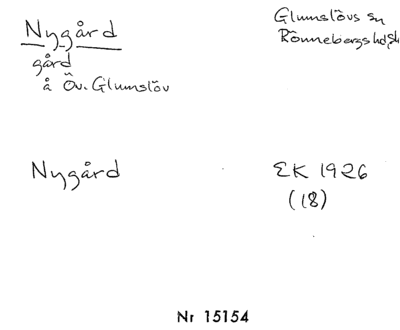 Nygård
gård
å Öv. Glumslöv
Glumslövs sn
Rönnebergs hd, Sk
Nygård
EK 1926
(18)
Nr 15154